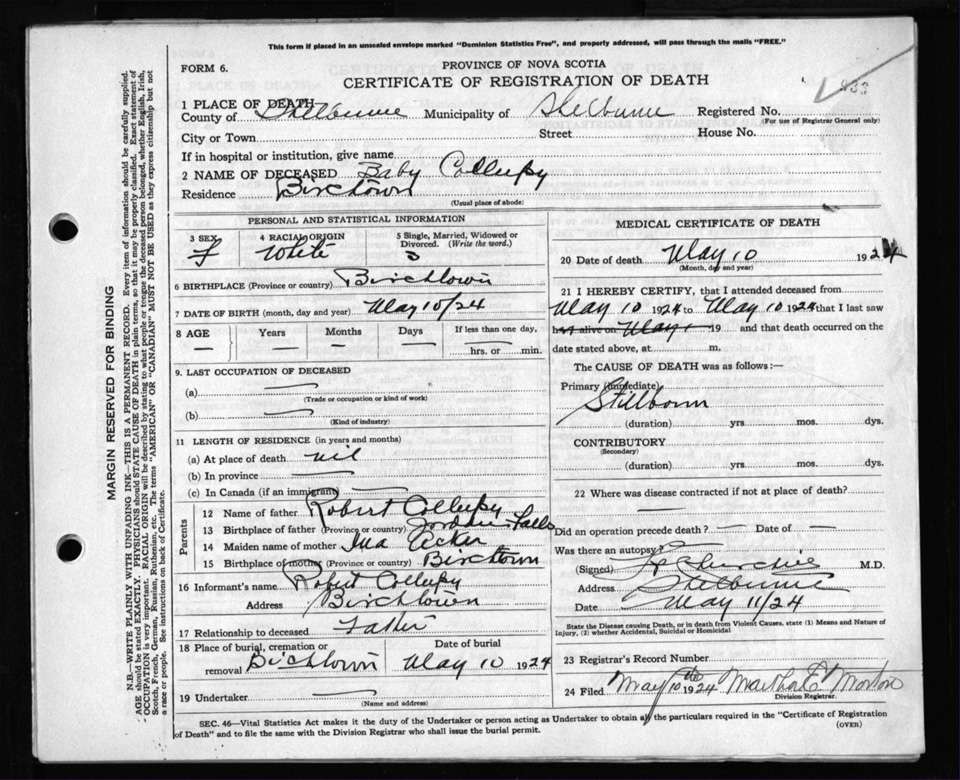 This form if placed in an unsealed envelope marked "Dominion Statistics Free", and properly addressed, will pass through the mails "FREE."
FORM 6.
PROVINCE OF NOVA SCOTIA
CERTIFICATE OF REGISTRATION OF DEATH
933
1 PLACE OF DEATH
County of Shelburne Municipality of Shelburne Registered No.
(For use of Registrar General only)
City or Town Street House No.
If in hospital or institution, give name
2 NAME OF DECEASED Baby Collupy
Residence Birchtown
(Usual place of abode)
PERSONAL AND STATISTICAL INFORMATION
3 SEX 4 RACIAL ORIGIN 5 Single, Married, Widowed or Divorced. (Write the word.)
f White S
6 BIRTHPLACE (Province or country) Birchtown
7 DATE OF BIRTH (month, day and year) May 10/24
8 AGE Years Months Days If less than one day,
— — — hrs. or min.
9. LAST OCCUPATION OF DECEASED
(a) —
(Trade or occupation or kind of work)
(b) —
(Kind of industry)
11 LENGTH OF RESIDENCE (in years and months)
(a) At place of death nil
(b) In province —
(c) In Canada (if an immigrant) —
Parents
12 Name of father Robert Collupy
13 Birthplace of father (Province or country) Jordan Falls
14 Maiden name of mother Ina Acker
15 Birthplace of mother (Province or country) Birchtown
16 Informant's name Robert Collupy
Address Birchtown
17 Relationship to deceased Father
18 Place of burial, cremation or removal Birchtown
Date of burial
May 10 1924
19 Undertaker —
(Name and address)
MEDICAL CERTIFICATE OF DEATH
20 Date of death May 10 1924
(Month, day and year)
21 I HEREBY CERTIFY, that I attended deceased from
May 10 1924 to May 10 1924 that I last saw
h alive on May 19 and that death occurred on
date stated above, at m.
The CAUSE OF DEATH was as follows:—
Primary (immediate)
Stillborn
(duration) yrs. mos. dys.
CONTRIBUTORY
(Secondary)
(duration) yrs. mos. dys.
22 Where was disease contracted if not at place of death?
—
Did an operation precede death? — Date of —
Was there an autopsy? —
(Signed) Churchill M.D.
Address Shelburne
Date May 11/24
State the Disease causing Death, or in death from Violent Causes, state (1) Means and Nature of Injury, (2) whether Accidental, Suicidal or Homicidal
23 Registrar's Record Number
24 Filed May 10th 1924 Martha E. Morton
Division Registrar.
SEC. 46—Vital Statistics Act makes it the duty of the Undertaker or person acting as Undertaker to obtain all the particulars required in the "Certificate of Registration
of Death" and to file the same with the Division Registrar who shall issue the burial permit.
(OVER)
MARGIN RESERVED FOR BINDING
N.B.—WRITE PLAINLY WITH UNFADING INK—THIS IS A PERMANENT RECORD. Every item of information should be carefully supplied.
AGE should be stated EXACTLY. PHYSICIANS should STATE CAUSE OF DEATH in plain terms, so that it may be properly classified. Exact statement of
OCCUPATION is very important. RACIAL ORIGIN will be described by stating to what people or tongue the deceased person belonged, whether English, Irish,
Scotch, French, German, Russian, Ruthenian, etc. The terms "AMERICAN" OR "CANADIAN" MUST NOT BE USED as they express citizenship but not
a race or people. See instructions on back of Certificate.